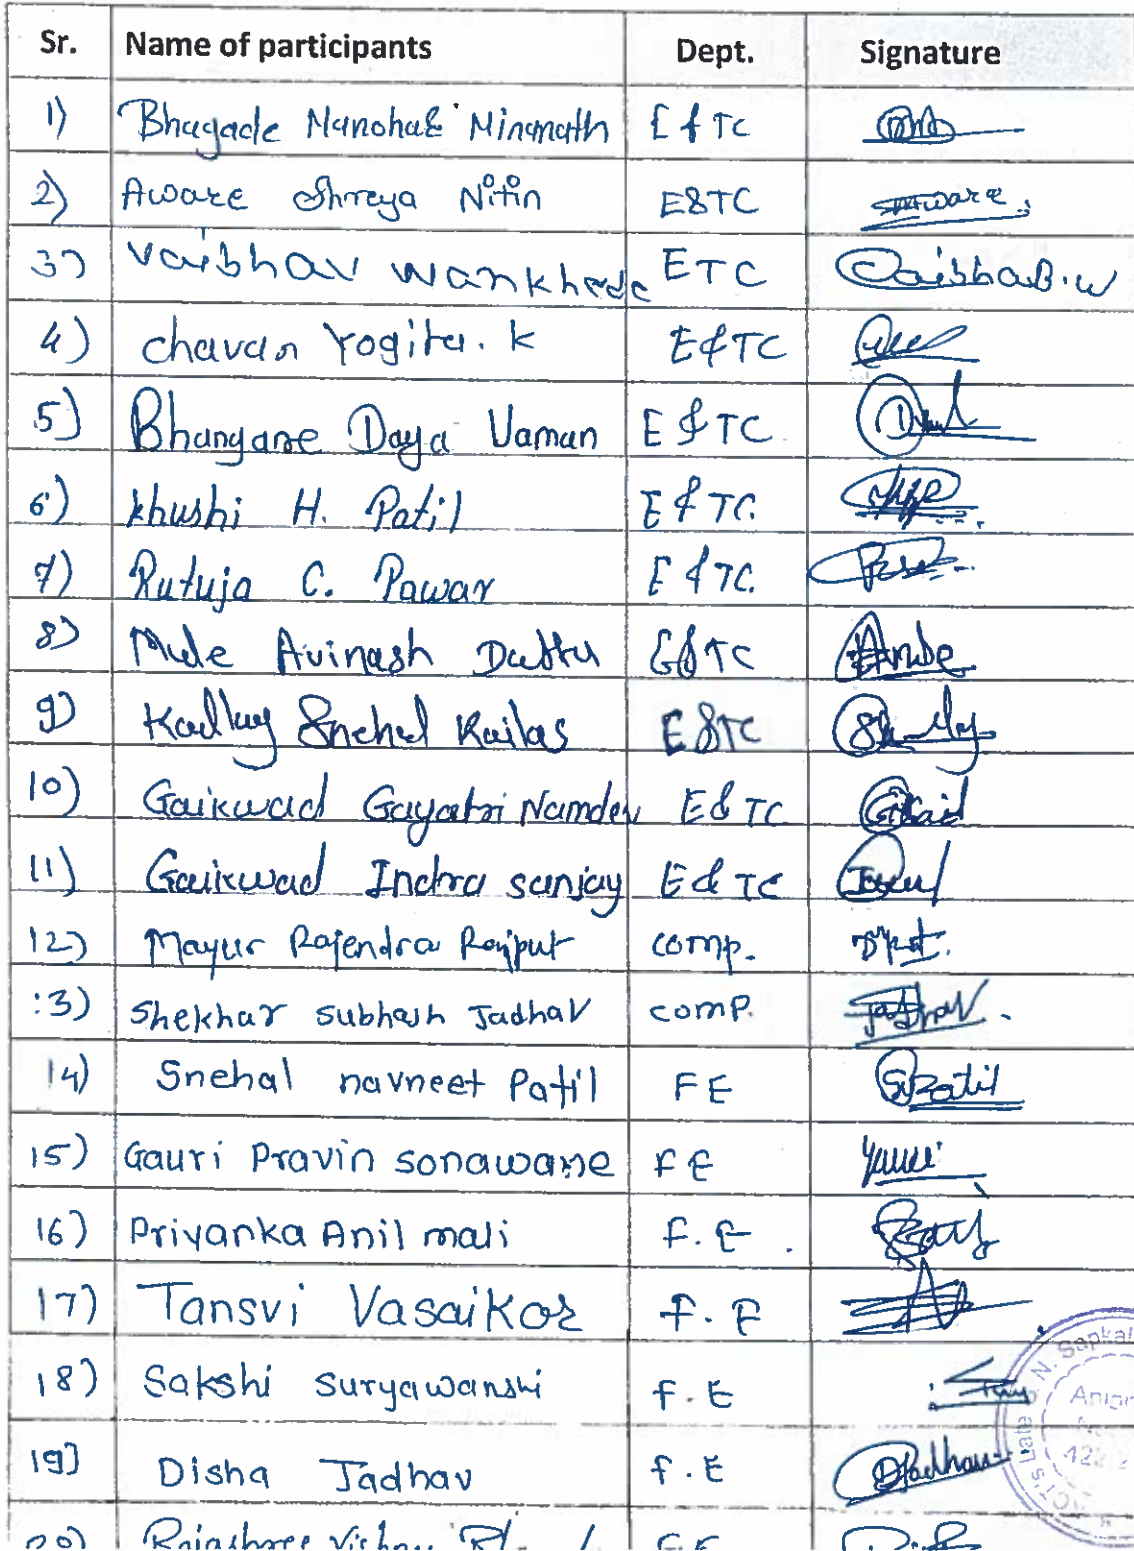 Sr. Name of participants Dept. Signature
1) Bhagade Manohar Minanath E & TC
2) Aware Shreya Nitin E&TC Aware
3) Vaibhav Wankhede ETC Vaibhav.W
4) Chavan Yogita. K E&TC
5) Bhangare Daya Vaman E & TC
6) Khushi H. Patil E & TC.
7) Rutuja C. Pawar E & TC.
8) Mule Avinash Dattu E&TC
9) Kadlag Snehal Kailas E&TC
10) Gaikwad Gayatri Namdev E & TC
11) Gaikwad Indra sanjay E & TC
12) Mayur Rajendra Rajput comp.
13) Shekhar subhash Jadhav comp. Jadhav
14) Snehal navneet Patil FE SPatil
15) Gauri Pravin sonawane FE
16) Priyanka Anil mali F.E.
17) Tansvi Vasaikar F.E
18) Sakshi suryawanshi F.E
19) Disha Jadhav F.E DJadhav
20) Rajashree Vishnu F.E
N. Sapkal
Late